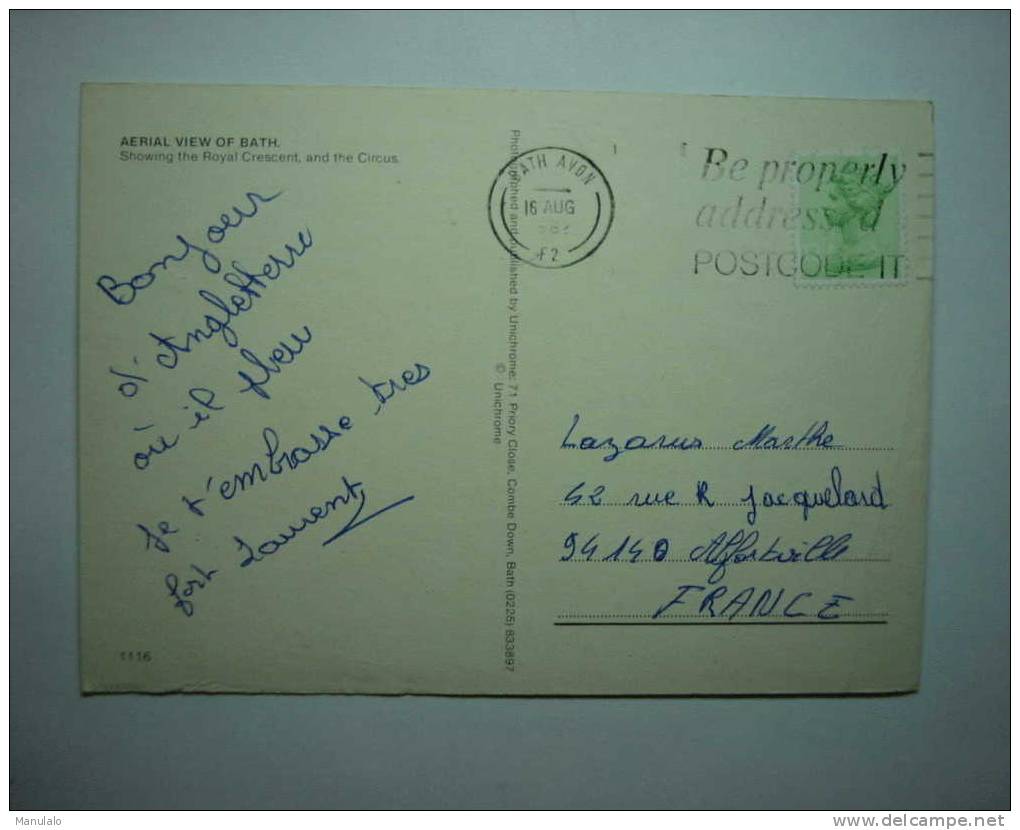 AERIAL VIEW OF BATH.
Showing the Royal Crescent, and the Circus.
Bonjour
d'Angletterre
où il pleu
Je t'embrasse tres
fort Laurent
1116
Photographed and published by Unichrome: 71 Priory Close, Combe Down, Bath (0225) 833897
© Unichrome
BATH AVON
16 AUG
F2
Be properly
addressed
POSTCODE IT
Lazarus Marthe
42 rue R Jacquelard
94140 Alfortville
FRANCE
Manulalo
www.delcampe.net